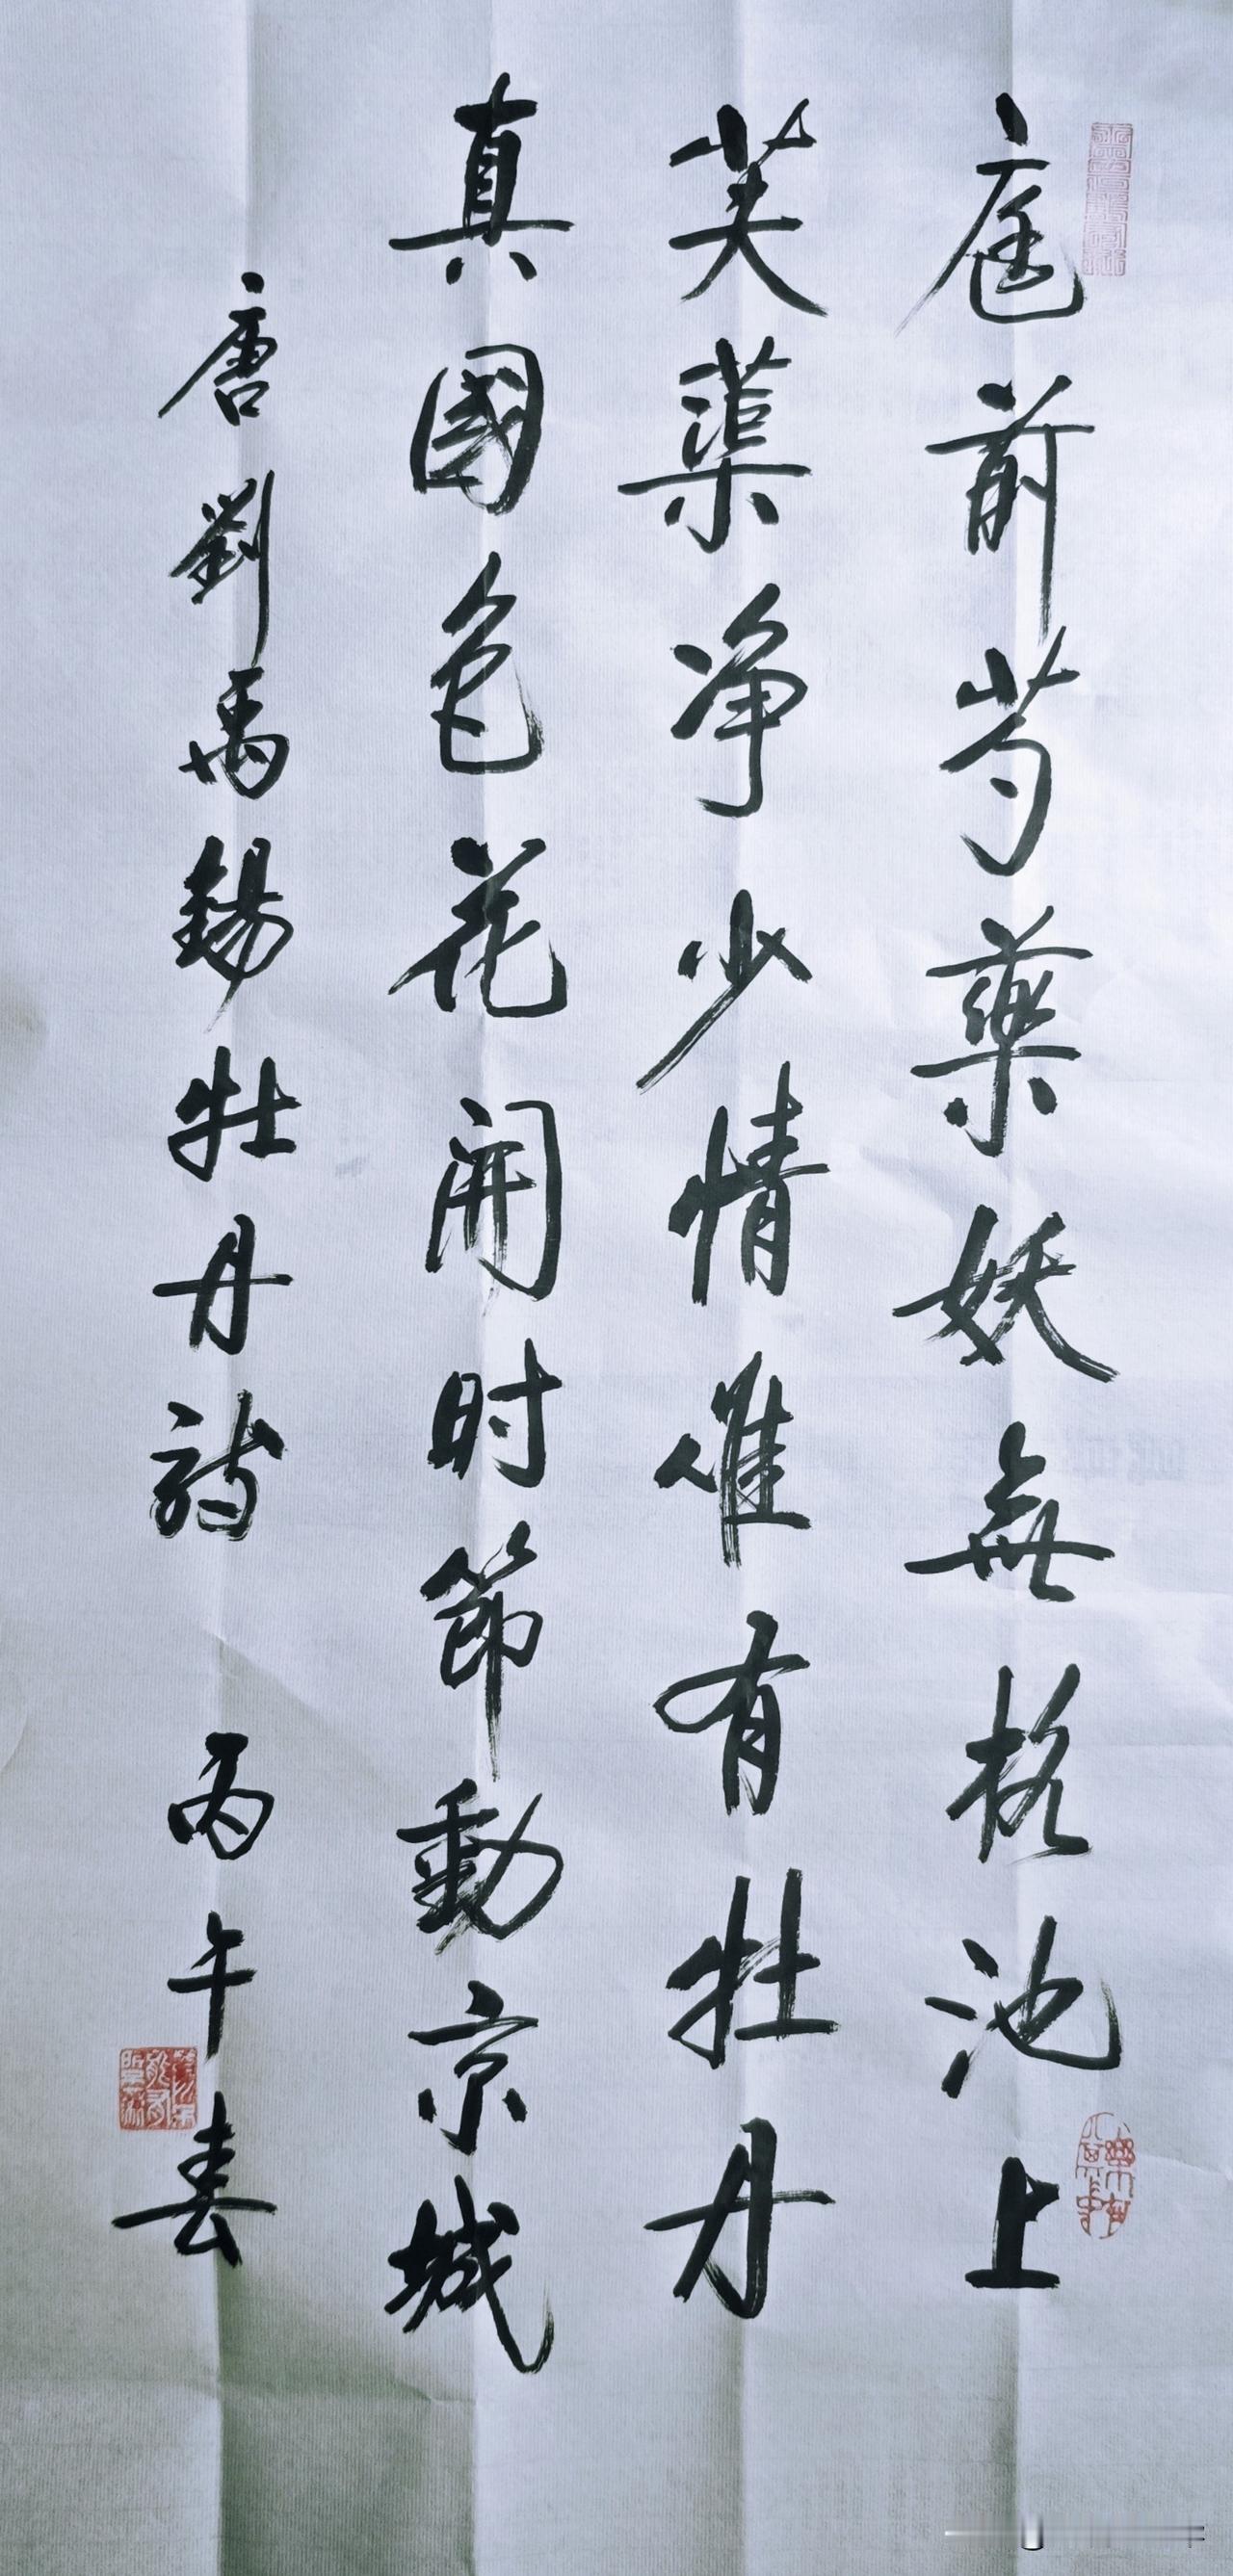 庭前芍藥妖無格池上
芙蕖净少情唯有牡丹
真國色花開时節動京城
唐劉禹錫牡丹詩 丙午春